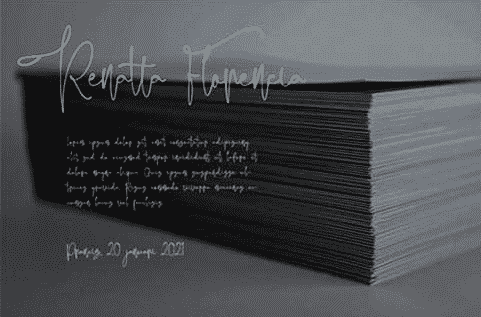 Renatta Florencia
lorem ipsum dolor sit amet consectetur adipiscing
elit sed do eiusmod tempor incididunt ut labore et
dolore magna aliqua. Quis ipsum suspendisse ul-
trices gravida. Risus commodo viverra maecenas ac-
cumsan lacus vel facilisis.
20 januari 2021